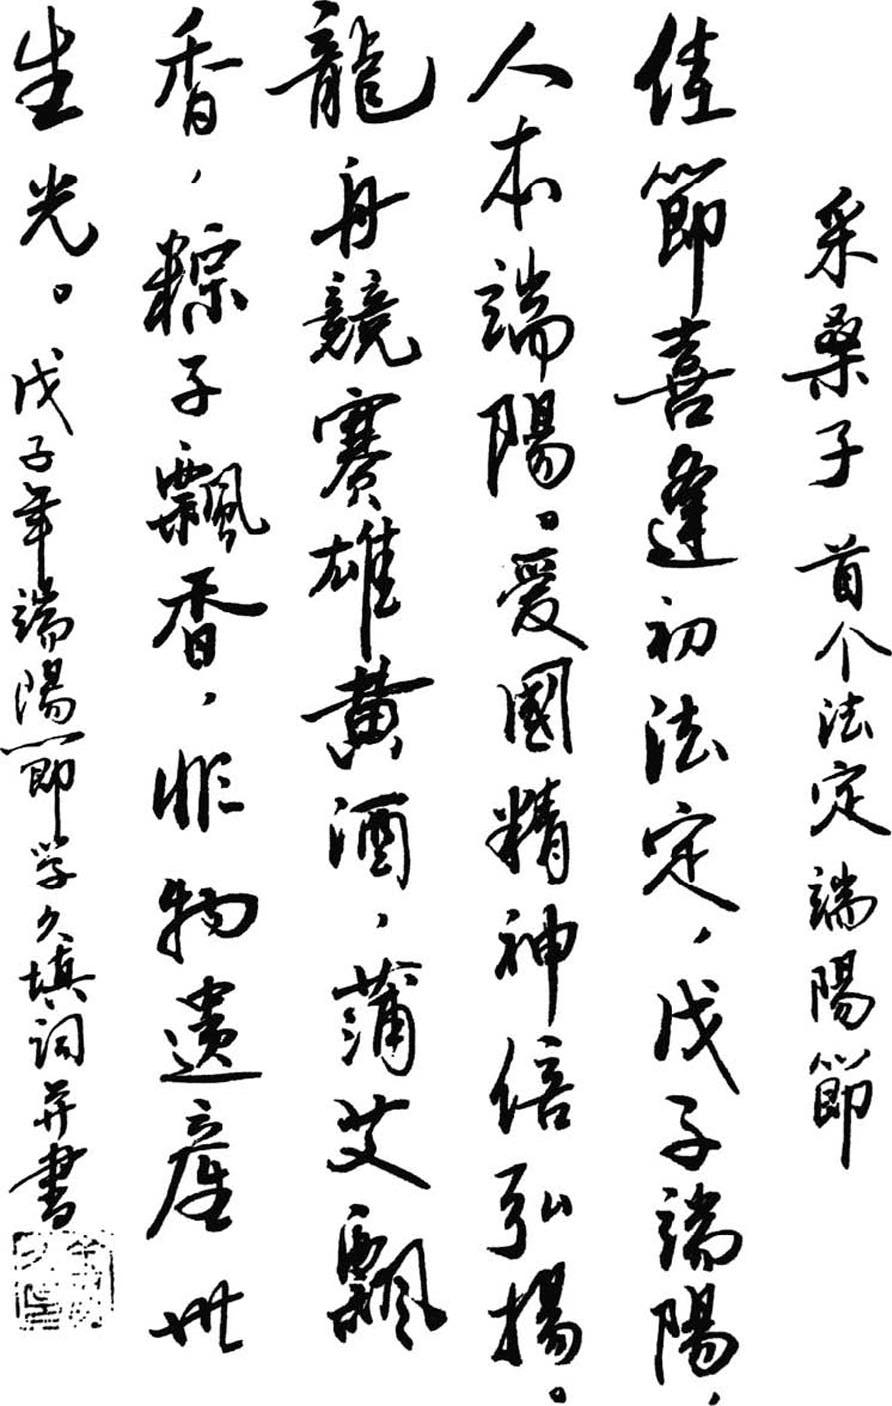 采桑子 首个法定端陽節
佳節喜逢初法定，戊子端陽，
人本端陽。爱國精神倍弘揚。
龍舟競賽雄黄酒，蒲艾飄
香，粽子飄香，非物遺產世
生光。戊子年端陽節学久填词并書